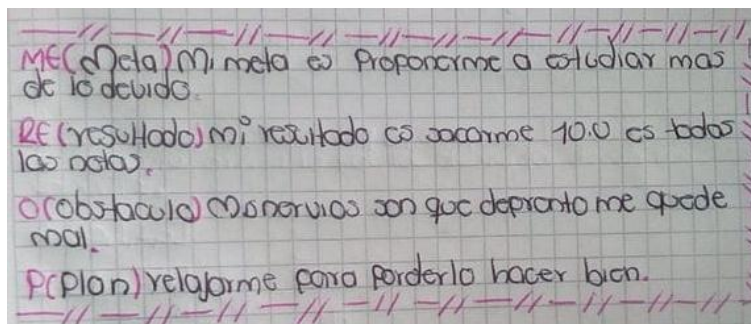 ME(Meta) Mi meta es Proponerme a estudiar mas
de lo debido.
RE(resultado) mi resultado es sacarme 10.0 es todas
las notas.
O(obstaculo) Mis nervios son que depronto me quede
mal.
P(Plan) relajarme para porderlo hacer bien.